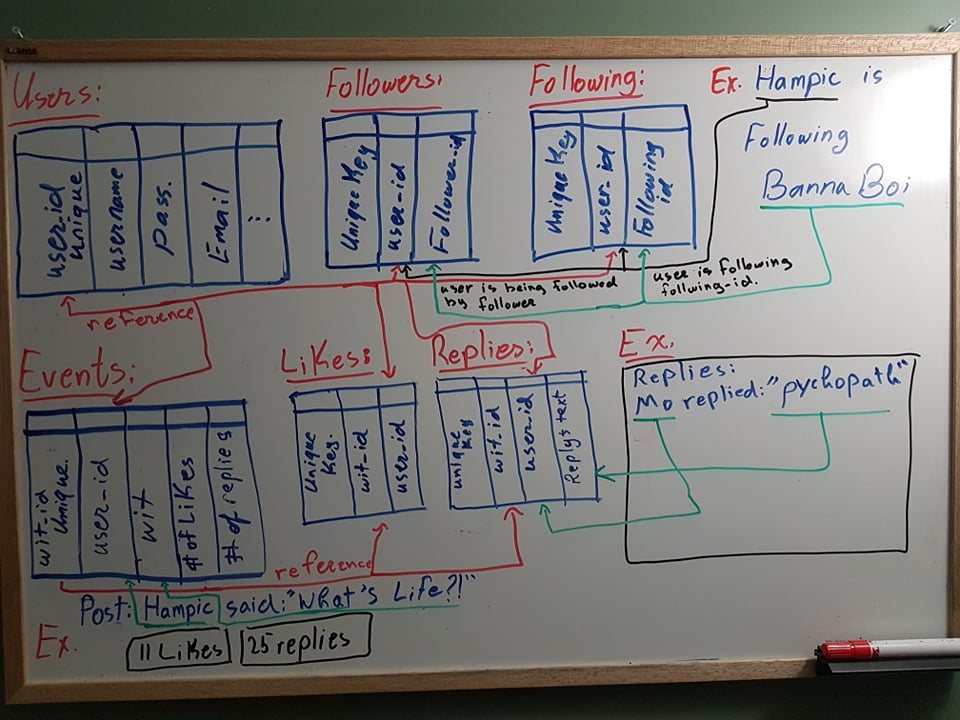 Users:
user_id unique
username
pass.
Email
...
Followers:
Unique Key
user-id
Follower-id
Following:
Unique Key
user_id
Following id
Ex. Hampic is
Following
Banna Boi
user is being followed
by follower
user is following
follwing-id.
reference
Events:
wit_id Unique.
user-id
wit
# of Likes
# of replies
Likes:
Unique Key.
wit-id
user-id
Replies:
unique Key
wit.id
user.id
Replys text
Ex.
Replies:
Mo replied: "pychopath"
reference
Post: Hampic said: "What's Life?!"
Ex.
11 Likes
25 replies